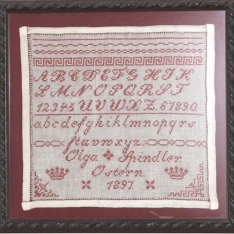 ABCDEFGHIK
LMNOPQRST
12345UVWXZ.67890
abcdefghiklmnopqrs
ftuvwxyz.
Olga Spindler
Ostern
1897.